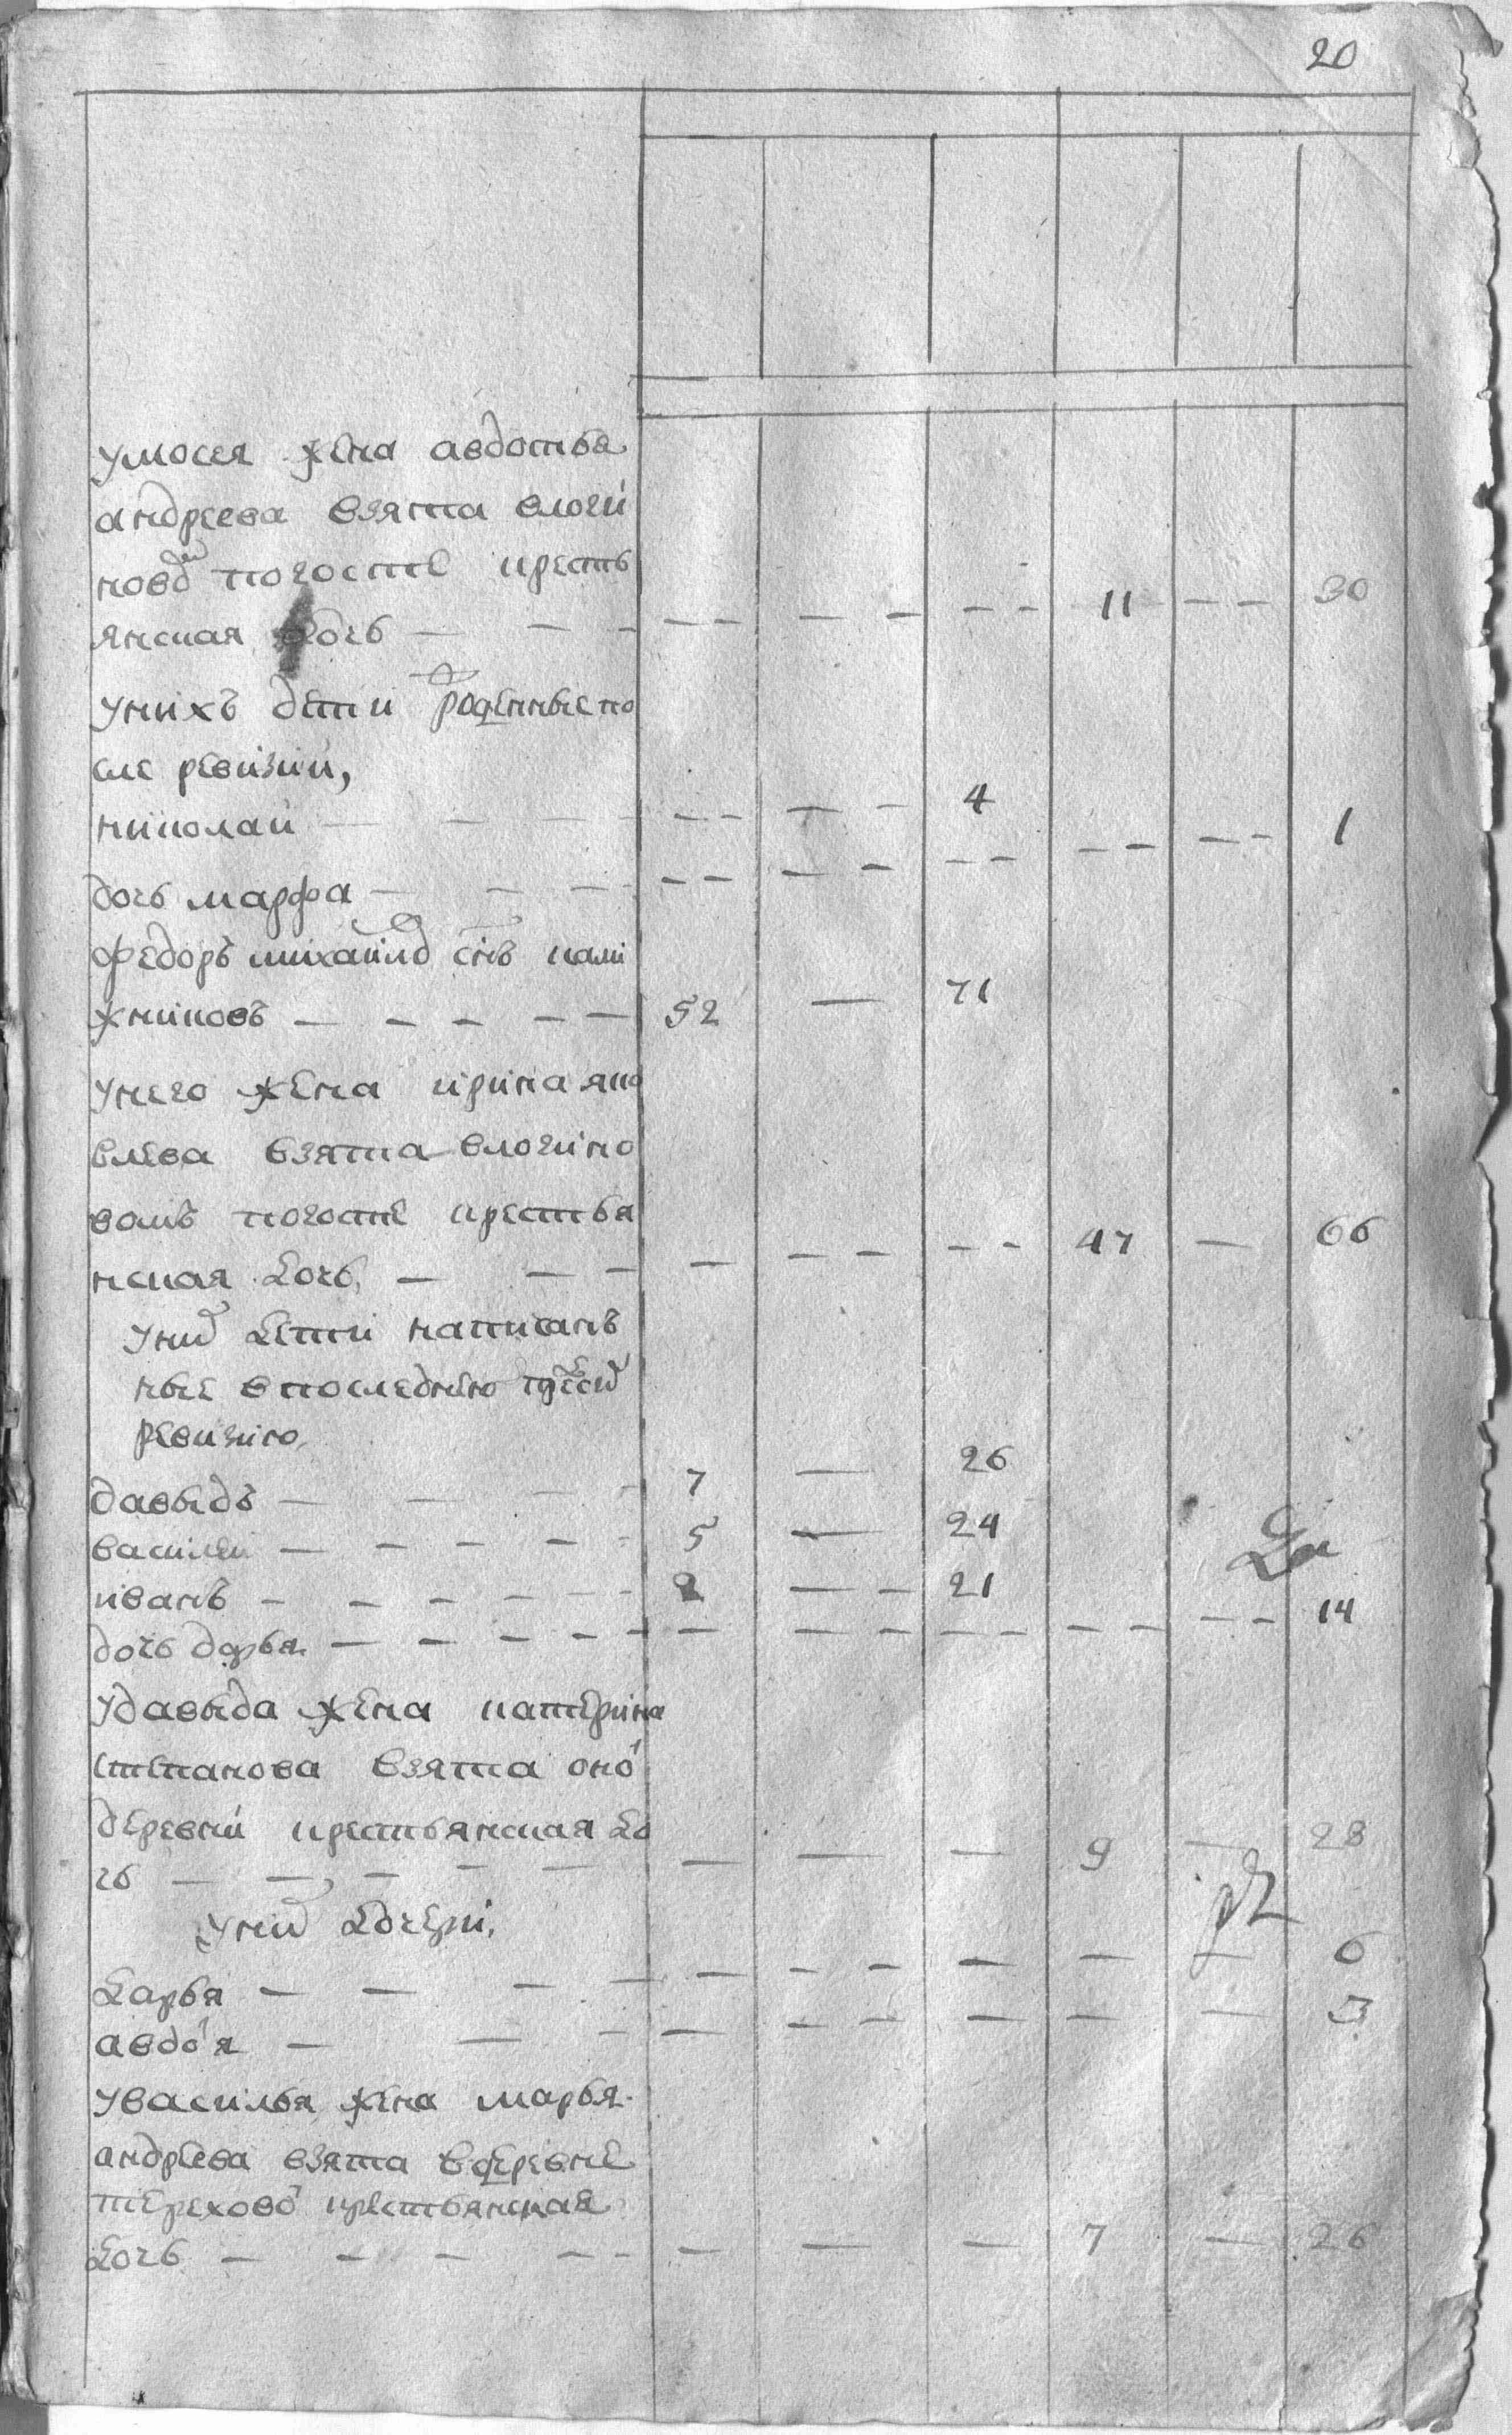 20
умосея жена авдотья
андреева взята влочи
новой погосте кресть
янская дочь — — — — — — — — — — 11 — — 30
унихъ дети рожденные по
сле ревизии,
николай — — — — — — — 4
дочь марфа — — — — — — — — — — — — — 1
федоръ михайло снъ кали
жниковъ — — — — — 52 — 71
унего жена ирина яко
влева взята влочино
вомъ погосте крестья
нская дочь, — — — — — — — — 47 — 66
уних дети написанъ
ные впоследнею третью
ревизию,
давыдъ — — — — 7 — 26
василеи — — — — — 5 — 24
иванъ — — — — — 2 — — 21
дочь дарья — — — — — — — — — — — — — — 14
удавыда жена катерина
степанова взята оной
деревни крестьянская до
чь — — — — — — — — 9 — 28
уних дочери,
дарья — — — — — — — — — — 6
авдотя — — — — — — — — — 3
увасилья жена марья
андреева взята вдеревне
терехово крестьянская
дочь — — — — — — — — 7 — 26